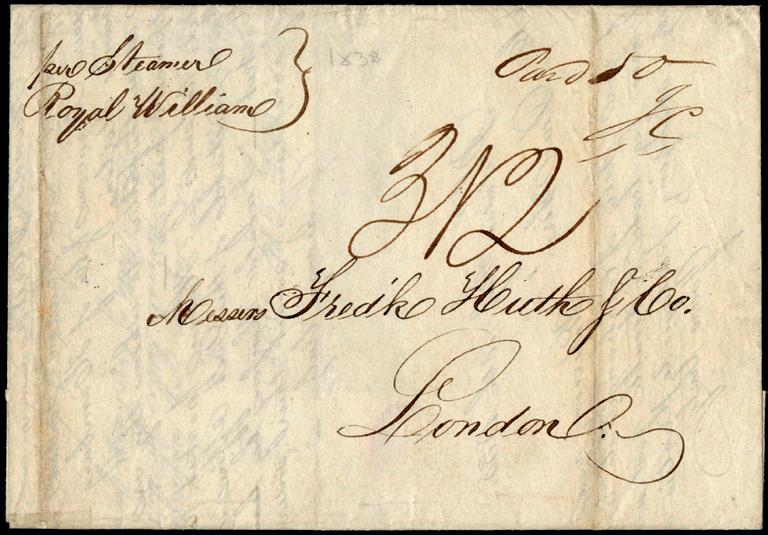 per Steamer
Royal William
1838
Paid 50
JC
3N2
Messrs Fredk Huth & Co.
London.